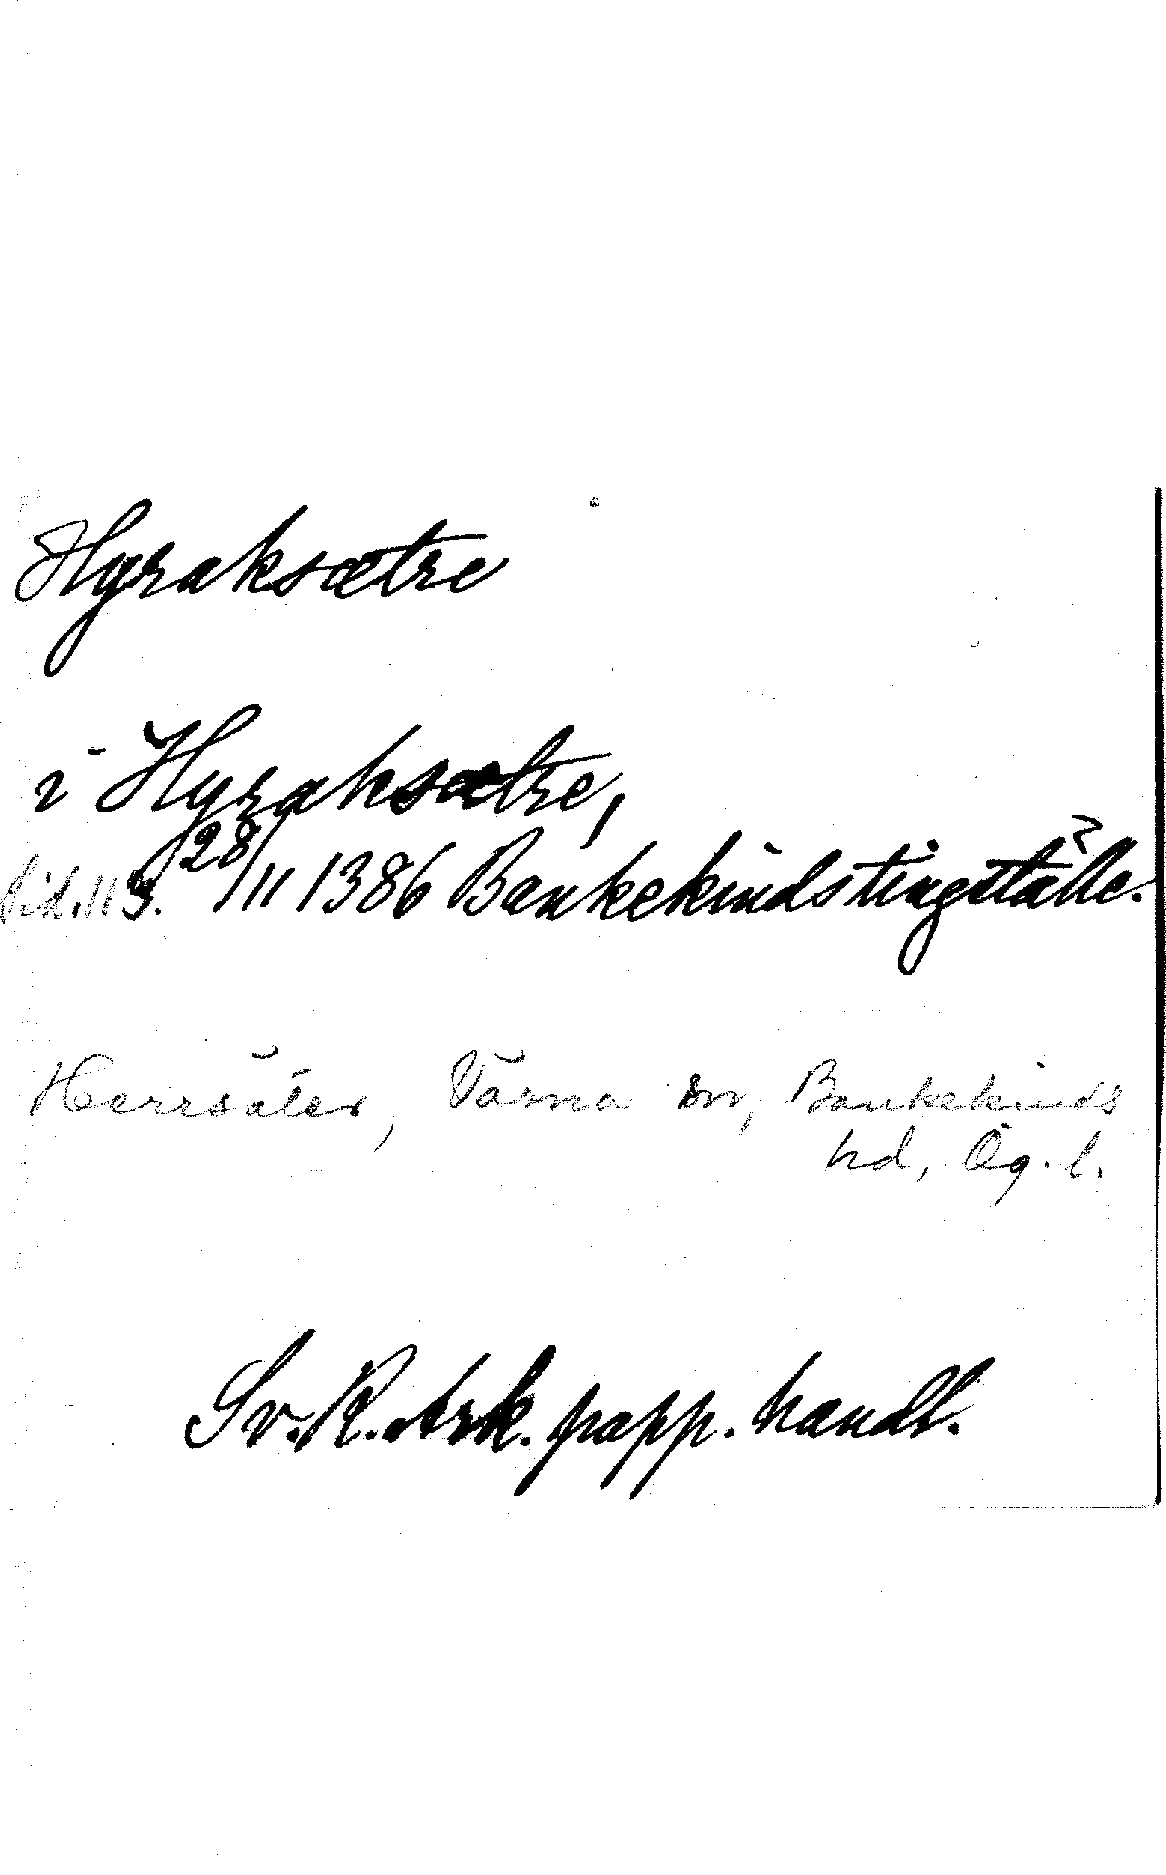 Hyraksætre
i Hyraksætre,
28/11 1386 Bankekinds tingställe.
Herrsäter, Värna sn, Bankekinds
hd, Ög. l.
Sv. R. Ark. papp. handl.